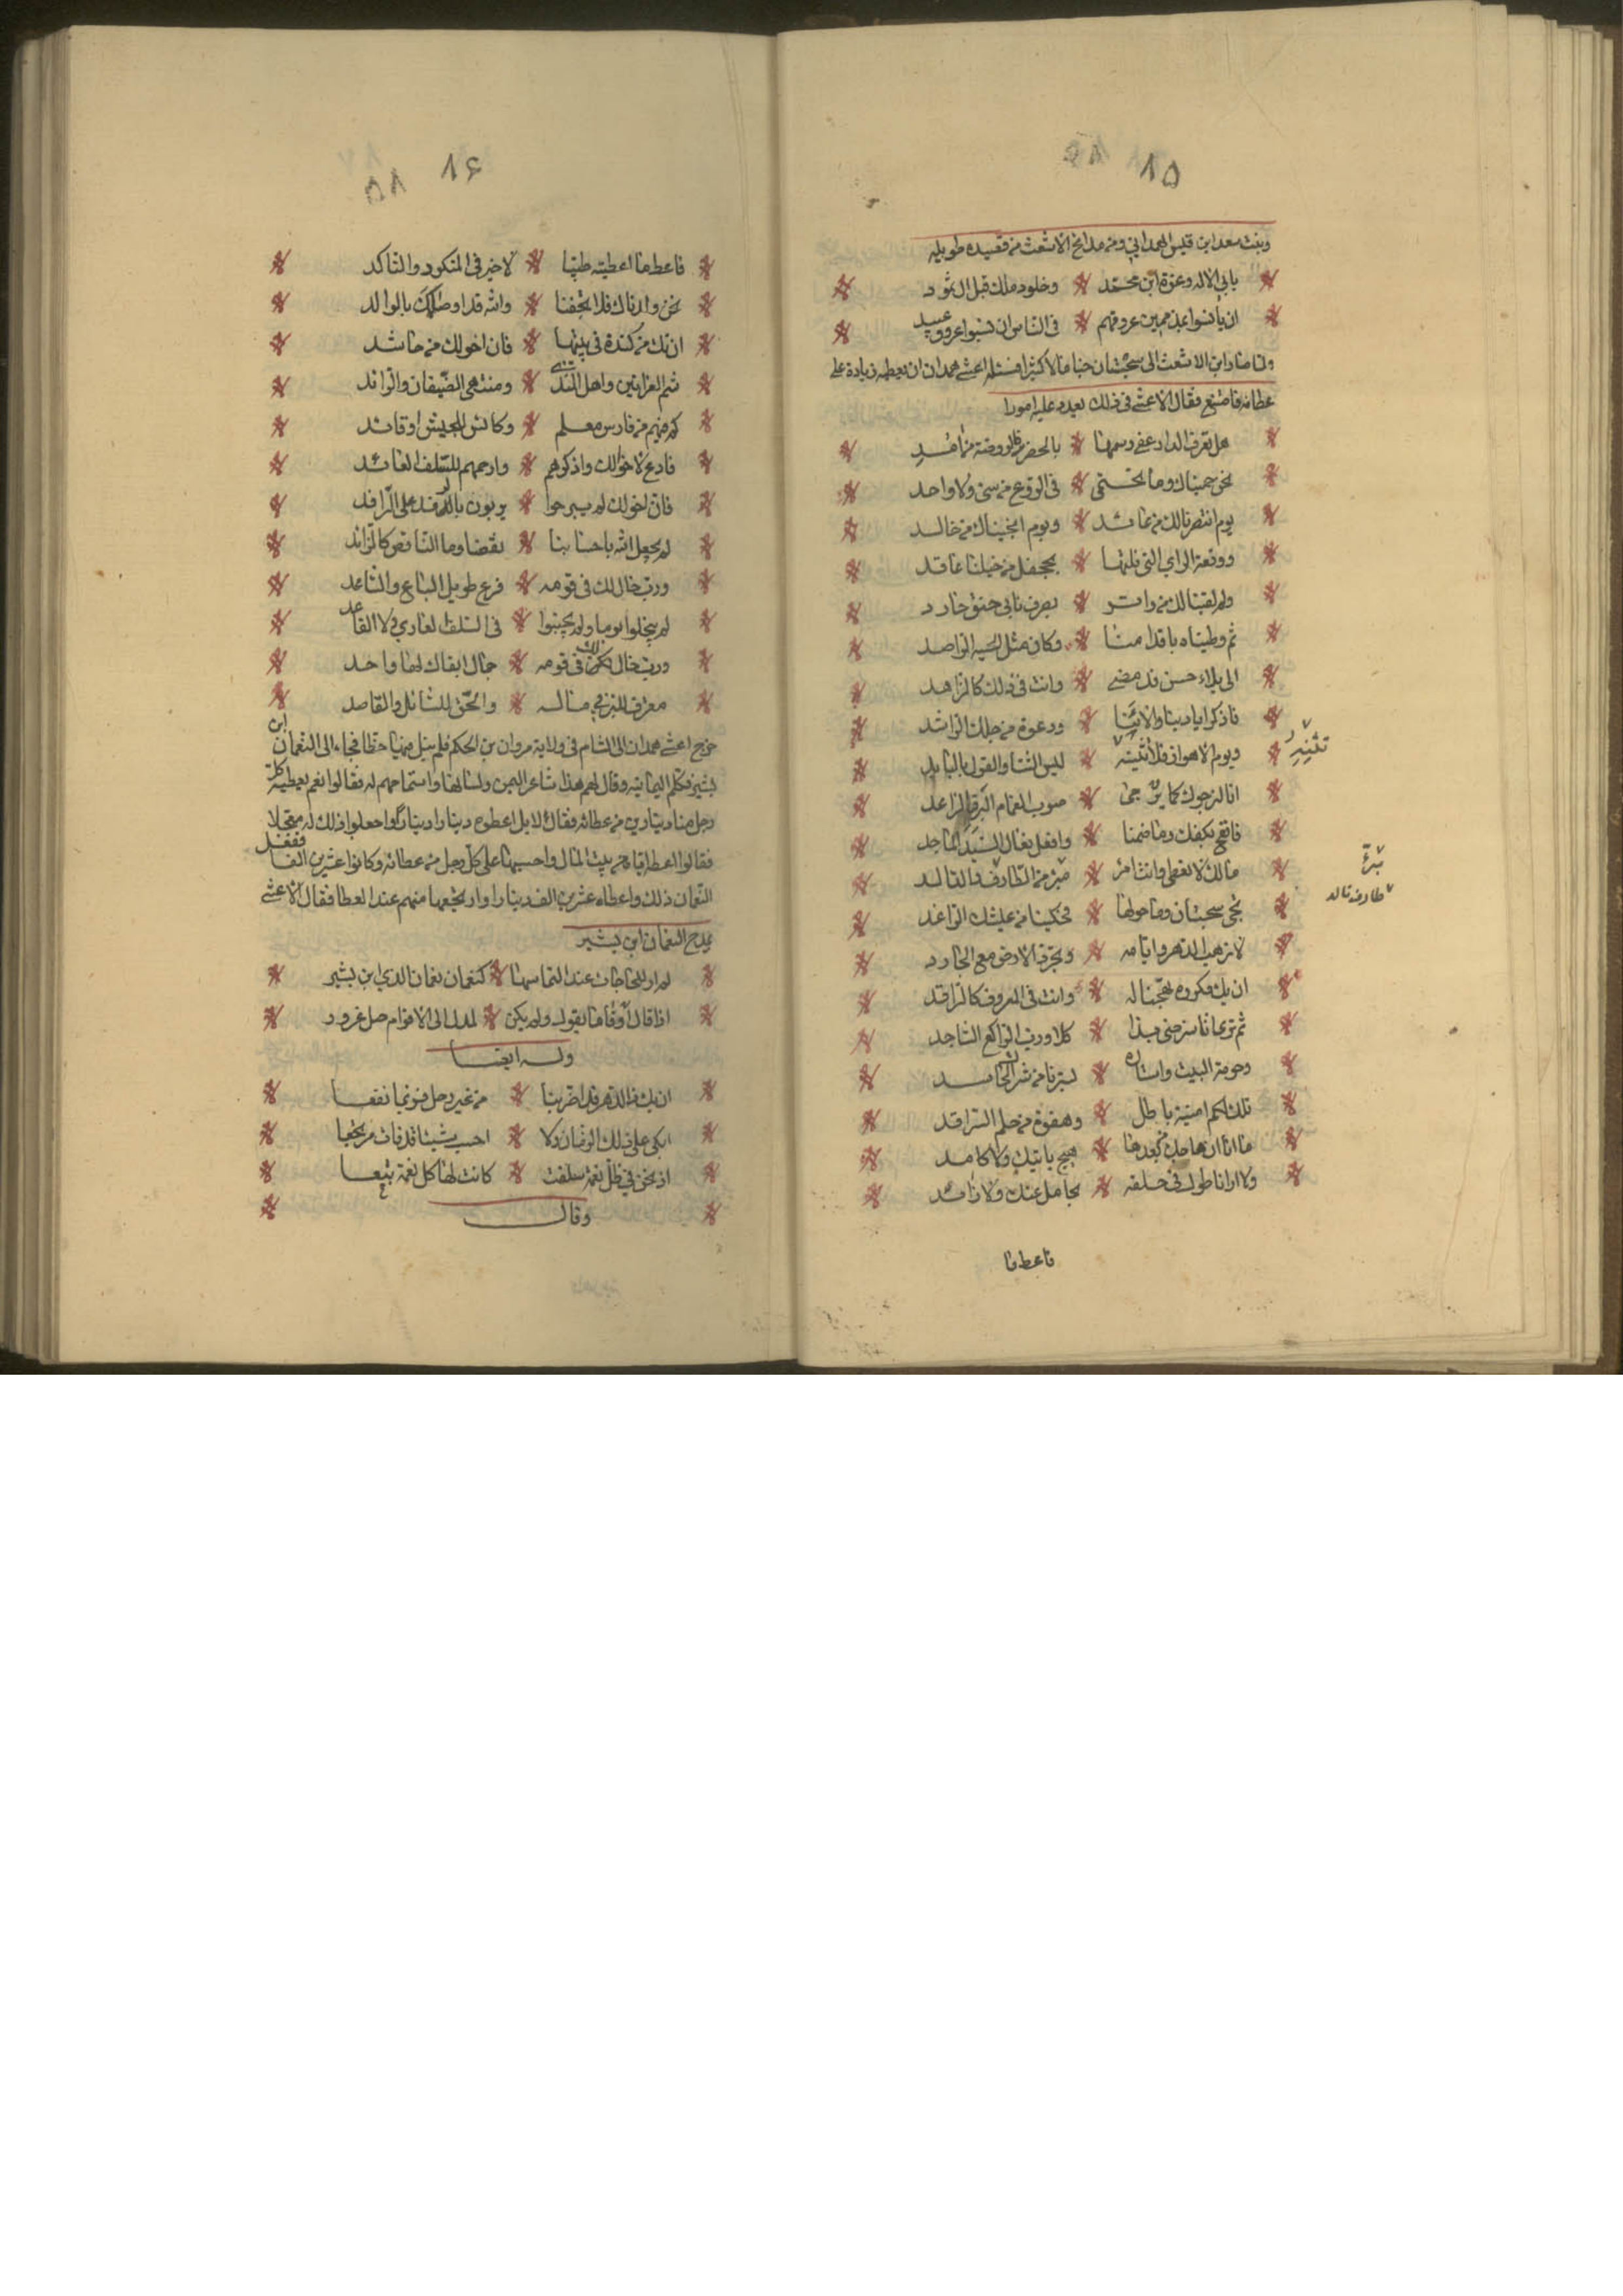 ١٥
وبنت سعد ابن قيس الهمداني ومن مدايح الاشعث من قصيده طويله
يابى الاله وعزة ابن محمد وخلود ملك قبل ال ثمود
ان يأنسوا بمذممين عروقهم فى الناس ان نسبوا عروق عبيد
ولما صار ابن الاشعث الى سجستان جبا مالا كثيرا فسئله اعشى همدان ان يعطيه زيادة على
عطائه فامتنع فقال الاعشى فى ذلك يعدد عليه امورا
هل تعرف الدار عفى رسمها بالحضر فالروضة من امد
نحن حميناك وما تحتمى فى الروع من مثنى ولا واحد
يوم انتصرنا لك من عائد ويوم انجيناك من خالد
ووقعة الراي التى نلتها بجحفل من خيلنا عاقد
ولم لقينا لك من واتر يصرف نابى حنق حارد
ثم وطيناه باقدامنا وكان مثل الحية الراصد
الى بلاء حسن قد مضى وانت فى ذلك كالزاهد
فاذكر ايادينا والائنا ودعوة من حلمك الراشد
ويوم الاهواز فلا تنسه ليس الثنا والقول بالبايد
تنسه
انا لنرجوك كما نرتجى صوب الغمام البرق الراعد
فانفح بكفيك وما ضمتا وافعل فعال السيد الماجد
مالك لا تعطى وانت امرؤ مثر من الطارف والتالد
مثرٍ
طارف تالد
تجبى سجستان وما حولها متكيا من عيشك الراغد
لا ترهب الدهر وايامه وتجرد الارض مع الجارد
ان يك مكروه تهجنا له وانت فى المعروف كالراقد
ثم ترى انا سنرضى بذا كلا ورب الراكع الساجد
وحرمة البيت واستاره ومن به من ناسك عابد
تلك لكم امنية باطل وهفوة من حلم الراقد
ما انا ان هاجك من بعدها هيج باتيك ولا كامد
ولا اذا ناطوك فى حلقه بحامل عنك ولا زائد
فاعط ما
١٦
فاعط ما اعطيته طيبا لا خير فى المنكود والناكد
نحن ولدناك فلا تجفنا والله قد اوصاك بالوالد
ان تك من كندة فى بيتها فان اخوالك من حاشد
شم العرانين واهل الندى ومنتهى الضيفان والرائد
كم فيهم من فارس معلم وسائس للجيش او قائد
فادع لاخوالك واذكرهم وارحمهم للسلف العائد
فان اخوالك لم يبرحوا يربون بالرفد على الرافد
لم يجعل الله باحسابنا نقصا وما الناقص كالزائد
ورب خال لك فى قومه فرع طويل الباع والساعد
لم يبخلوا يوما ولم يجبنوا فى السلف الغازي ولا القاعد
ورب خال لك فى قومه حمال اثقال لها واحد
معترف للرزء فى ماله والحق للسائل والقاصد
خرج اعشى همدان الى الشام فى ولاية مروان بن الحكم فلم ينل فيها حظا فجاء الى النعمان ابن
بشير فكلم اليمانيه وقال لهم هذا شاعر اليمن ولسانها واستماحهم له فقالوا نعم يعطيه كل
رجل منا دينارين من عطائه فقال لا بل اعطوه دينارا دينارا واجعلوا ذلك له معجلا
فقالوا اعطه اياه من بيت المال واحسبها على كل رجل من عطائه وكانوا عشرين الفا ففعل
النعمان ذلك واعطاه عشرين الف دينار وارتجعها منهم عند العطا فقال الاعشى
يمدح النعمان ابن بشير
لم ار للحاجات عند التماسها كنعمان نعمان الندي ابن بشير
اذا قال اوفى ما يقول ولم يكن لمدل الى الاقوام حبل غرور
وله ايضا
ان يك ذا الدهر قد اضر بنا من غير دحل فربما نفعا
ابكى على ذلك الزمان ولا احسب شيئا قد فات مرتجعا
اذ نحن فى ظل نعمة سلفت كانت لها كل نعمة تبعا
وقال